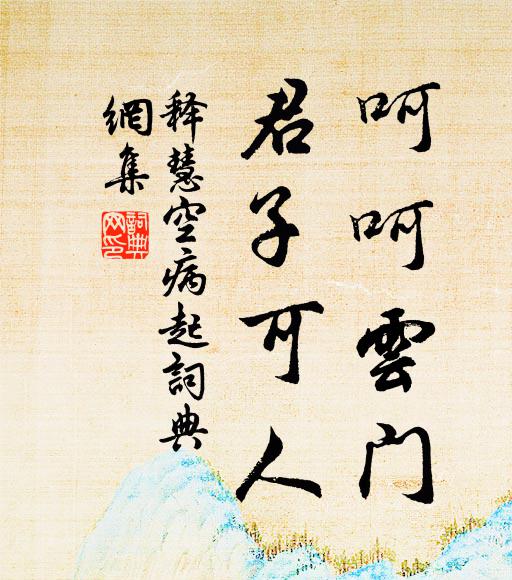 呵呵雲門
君子可人
释慧空病起詞典
網集
詞典
网印